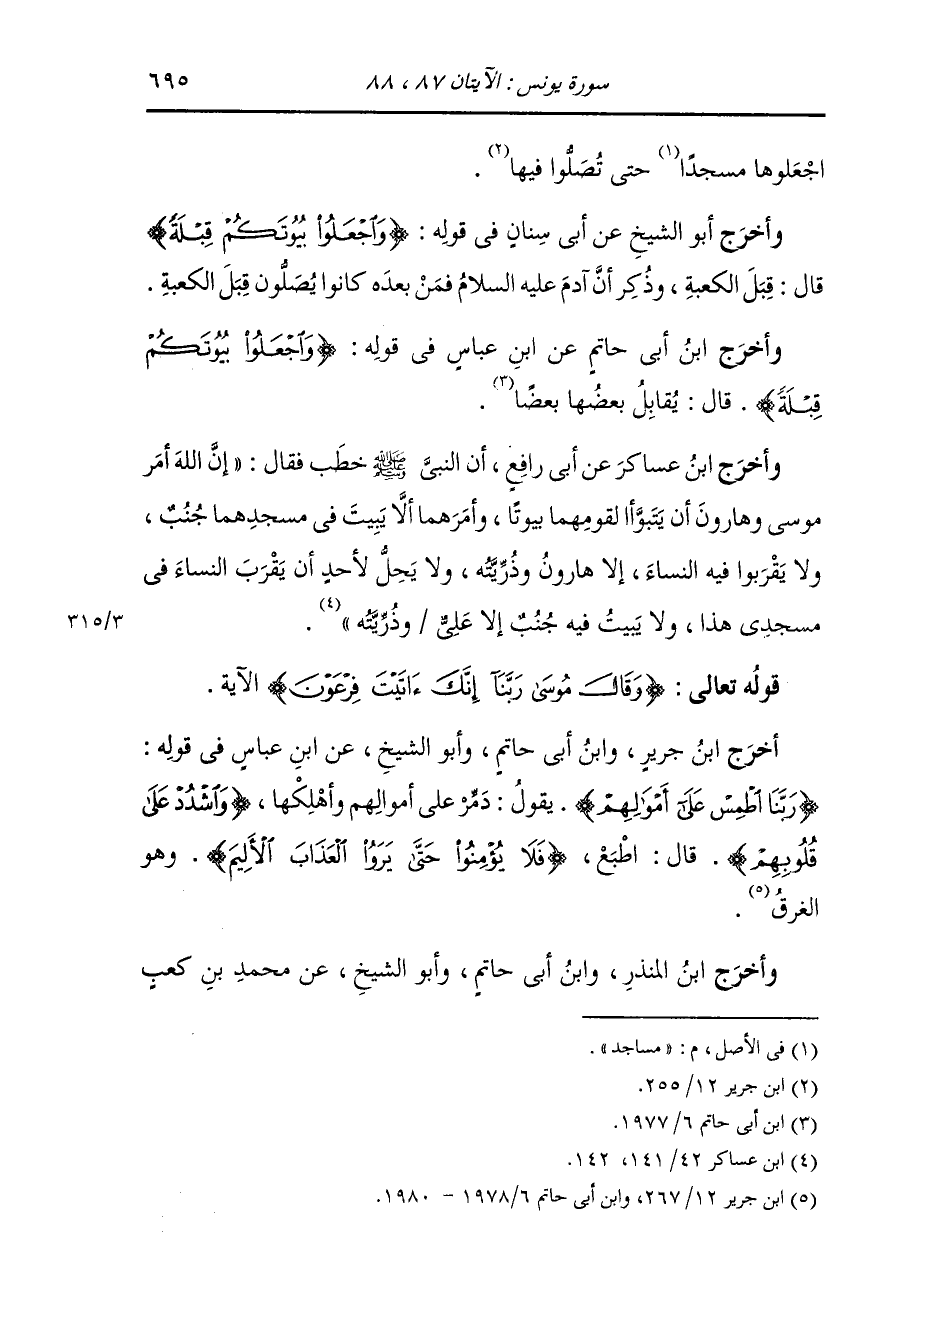 سورة يونس : الآيتان ٨٧ ، ٨٨ ٦٩٥
اجْعَلوها مسجدًا(١) حتى تُصَلُّوا فيها(٢) .
وأخرَج أبو الشيخِ عن أبى سِنانٍ فى قولِه : ﴿وَٱجْعَلُوا۟ بُيُوتَكُمْ قِبْلَةً﴾
قال : قِبَلَ الكعبةِ ، وذُكِر أنَّ آدمَ عليه السلامُ فمَنْ بعدَه كانوا يُصَلُّون قِبَلَ الكعبةِ .
وأخرَج ابنُ أبى حاتمٍ عن ابنِ عباسٍ فى قولِه : ﴿وَٱجْعَلُوا۟ بُيُوتَكُمْ
قِبْلَةً﴾ . قال : يُقابِلُ بعضُها بعضًا(٣) .
وأخرَج ابنُ عساكرَ عن أبى رافعٍ ، أن النبىَّ ﷺ خطَب فقال : « إنَّ اللهَ أمَر
موسى وهارونَ أن يَتَبوَّأا لقومِهما بيوتًا ، وأمَرَهما ألَّا يَبِيتَ فى مسجدِهما جُنُبٌ ،
ولا يَقْرَبوا فيه النساءَ ، إلا هارونُ وذُرِّيَّتُه ، ولا يَحِلُّ لأحدٍ أن يَقْرَبَ النساءَ فى
مسجدِى هذا ، ولا يَبيتُ فيه جُنُبٌ إلا عَلِىٌّ / وذُرِّيَّتُه »(٤) . ٣١٥/٣
قولُه تعالى : ﴿وَقَالَ مُوسَىٰ رَبَّنَآ إِنَّكَ ءَاتَيْتَ فِرْعَوْنَ﴾ الآية .
أخرَج ابنُ جريرٍ ، وابنُ أبى حاتمٍ ، وأبو الشيخِ ، عن ابنِ عباسٍ فى قولِه :
﴿رَبَّنَا ٱطْمِسْ عَلَىٰٓ أَمْوَٰلِهِمْ﴾ . يقولُ : دَمِّرْ على أموالِهم وأهْلِكْها ، ﴿وَٱشْدُدْ عَلَىٰ
قُلُوبِهِمْ﴾ . قال : اطْبَعْ ، ﴿فَلَا يُؤْمِنُوا۟ حَتَّىٰ يَرَوُا۟ ٱلْعَذَابَ ٱلْأَلِيمَ﴾ . وهو
الغرقُ(٥) .
وأخرَج ابنُ المنذرِ ، وابنُ أبى حاتمٍ ، وأبو الشيخِ ، عن محمدِ بنِ كعبٍ
(١) فى الأصل ، م : « مساجد » .
(٢) ابن جرير ١٢/ ٢٥٥.
(٣) ابن أبى حاتم ٦/ ١٩٧٧.
(٤) ابن عساكر ٤٢/ ١٤١، ١٤٢.
(٥) ابن جرير ١٢/ ٢٦٧، وابن أبى حاتم ٦/ ١٩٧٨ - ١٩٨٠.